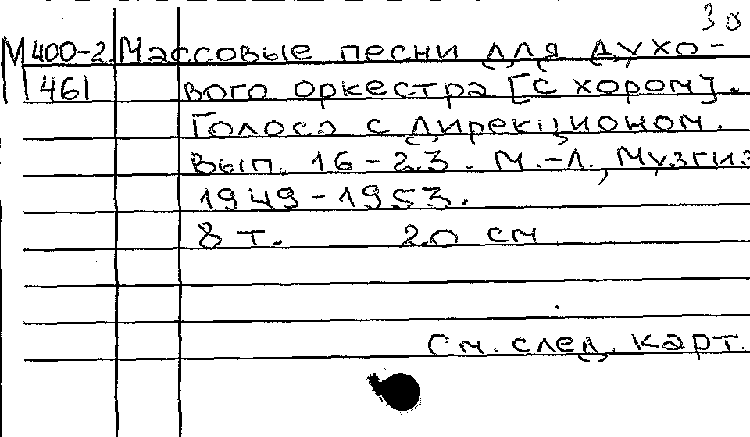 30
М 400-2 Массовые песни для духо-
461 вого оркестра [с хором].
Голоса с дирекционом.
Вып. 16-23. М.-Л., Музгиз
1949-1953.
8 т. 20 см
См. след. карт.